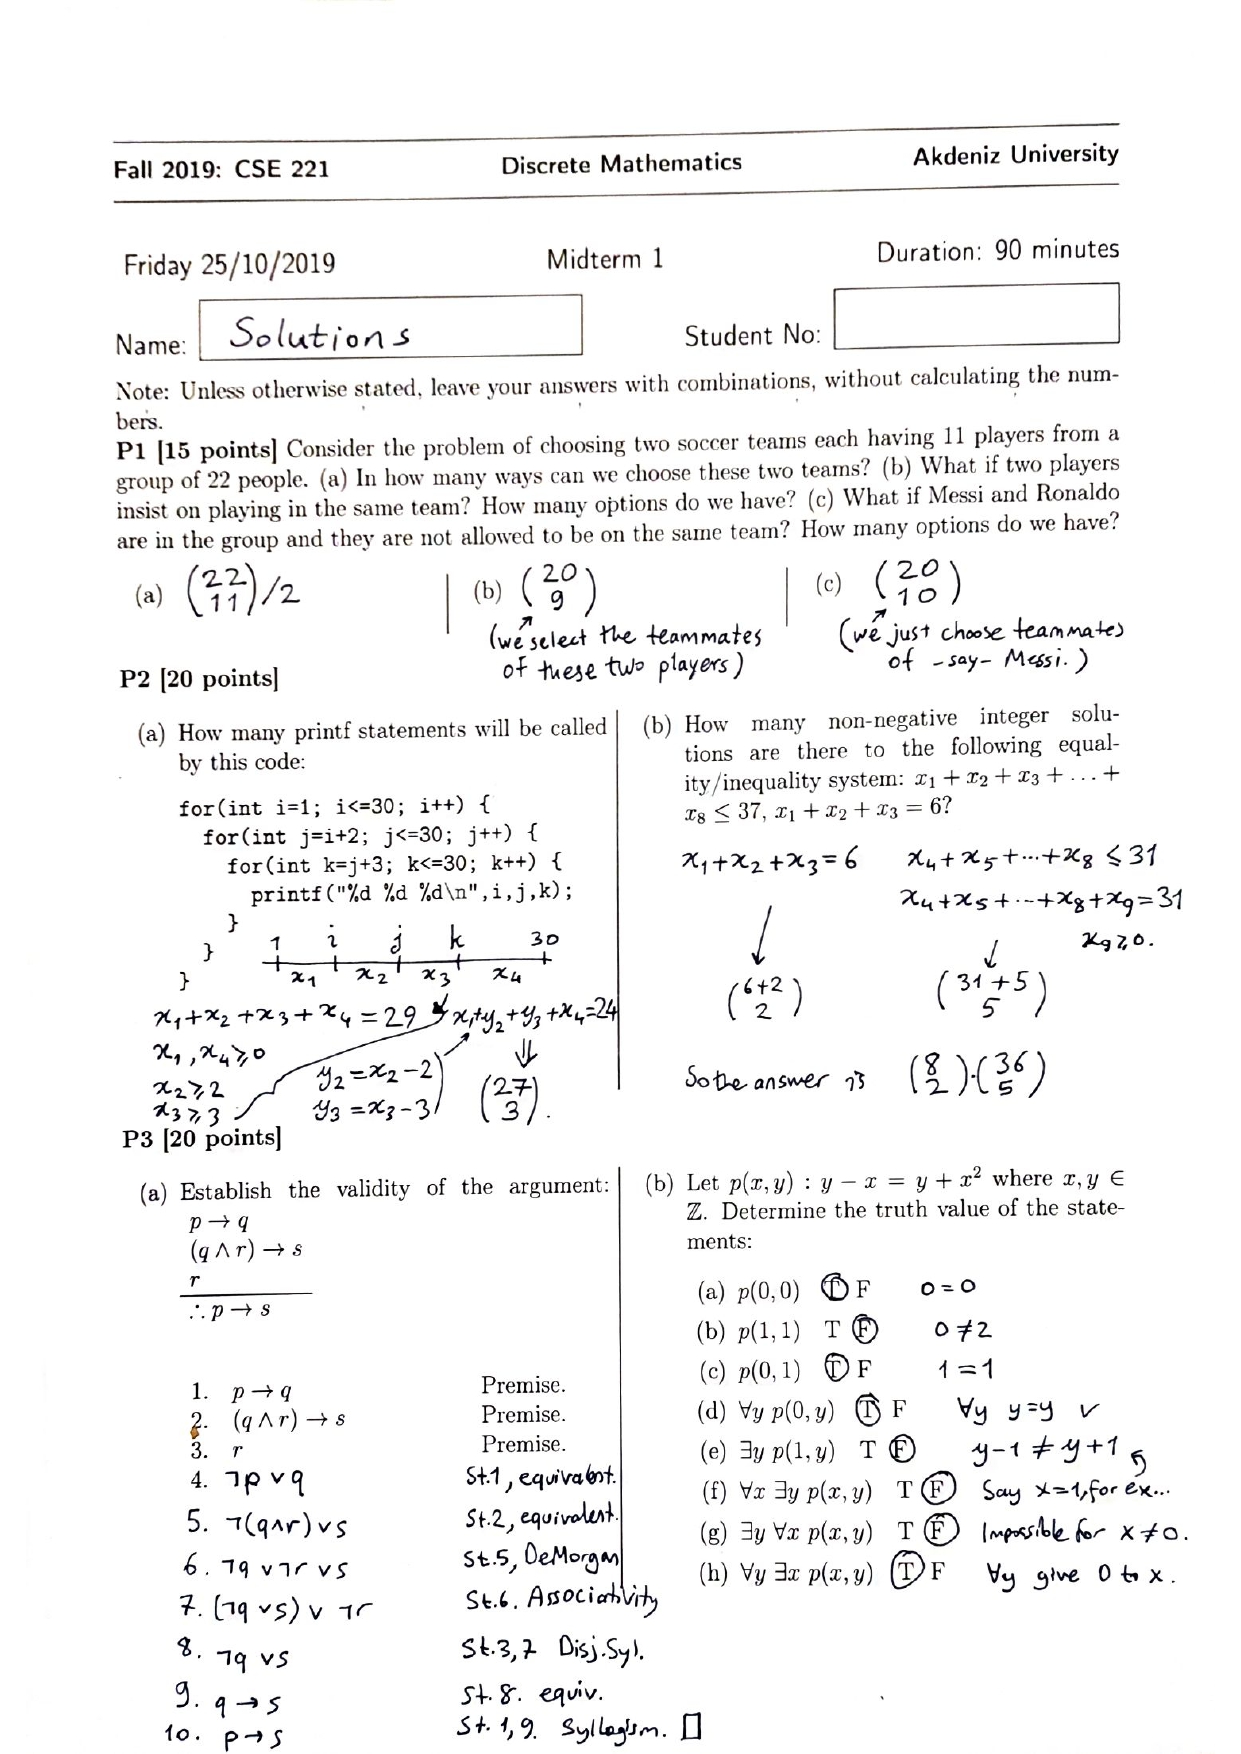 Fall 2019: CSE 221 Discrete Mathematics Akdeniz University
Friday 25/10/2019 Midterm 1 Duration: 90 minutes
Name: Solutions Student No:
Note: Unless otherwise stated, leave your answers with combinations, without calculating the num-
bers.
P1 [15 points] Consider the problem of choosing two soccer teams each having 11 players from a
group of 22 people. (a) In how many ways can we choose these two teams? (b) What if two players
insist on playing in the same team? How many options do we have? (c) What if Messi and Ronaldo
are in the group and they are not allowed to be on the same team? How many options do we have?
(a) (22 11)/2
(b) (20 9)
(we select the teammates
of these two players)
(c) (20 10)
(we just choose teammates
of -say- Messi.)
P2 [20 points]
(a) How many printf statements will be called
by this code:
for(int i=1; i<=30; i++) {
for(int j=i+2; j<=30; j++) {
for(int k=j+3; k<=30; k++) {
printf("%d %d %d\n",i,j,k);
}
}
}
1 i j k 30
x₁ x₂ x₃ x₄
x₁+x₂+x₃+x₄=29
x₁,x₄⩾0
x₂⩾2
x₃⩾3
y₂=x₂-2
y₃=x₃-3
x₁+y₂+y₃+x₄=24
⇓
(27 3).
(b) How many non-negative integer solu-
tions are there to the following equal-
ity/inequality system: x₁ + x₂ + x₃ + ... +
x₈ ≤ 37, x₁ + x₂ + x₃ = 6?
x₁+x₂+x₃=6 x₄+x₅+...+x₈ ≤31
x₄+x₅+...+x₈+x₉=31
x₉⩾0.
(6+2 2) (31+5 5)
So the answer is (8 2).(36 5)
P3 [20 points]
(a) Establish the validity of the argument:
p → q
(q ∧ r) → s
r
∴ p → s
1. p → q Premise.
2. (q ∧ r) → s Premise.
3. r Premise.
4. ¬p ∨ q St.1, equivalent.
5. ¬(q∧r)∨s St.2, equivalent.
6. ¬q ∨¬r ∨s St.5, DeMorgan
7. (¬q ∨s) ∨ ¬r St.6. Associativity
8. ¬q ∨s St.3,7 Disj.Syl.
9. q → s St. 8. equiv.
10. p→s St. 1,9. Syllogism. □
(b) Let p(x, y) : y − x = y + x² where x, y ∈
ℤ. Determine the truth value of the state-
ments:
(a) p(0, 0) T F 0=0
(b) p(1, 1) T F 0≠2
(c) p(0, 1) T F 1=1
(d) ∀y p(0, y) T F ∀y y=y ✓
(e) ∃y p(1, y) T F y-1≠y+1
(f) ∀x ∃y p(x, y) T F Say x=1, for ex...
(g) ∃y ∀x p(x, y) T F Impossible for x≠0.
(h) ∀y ∃x p(x, y) T F ∀y give 0 to x.